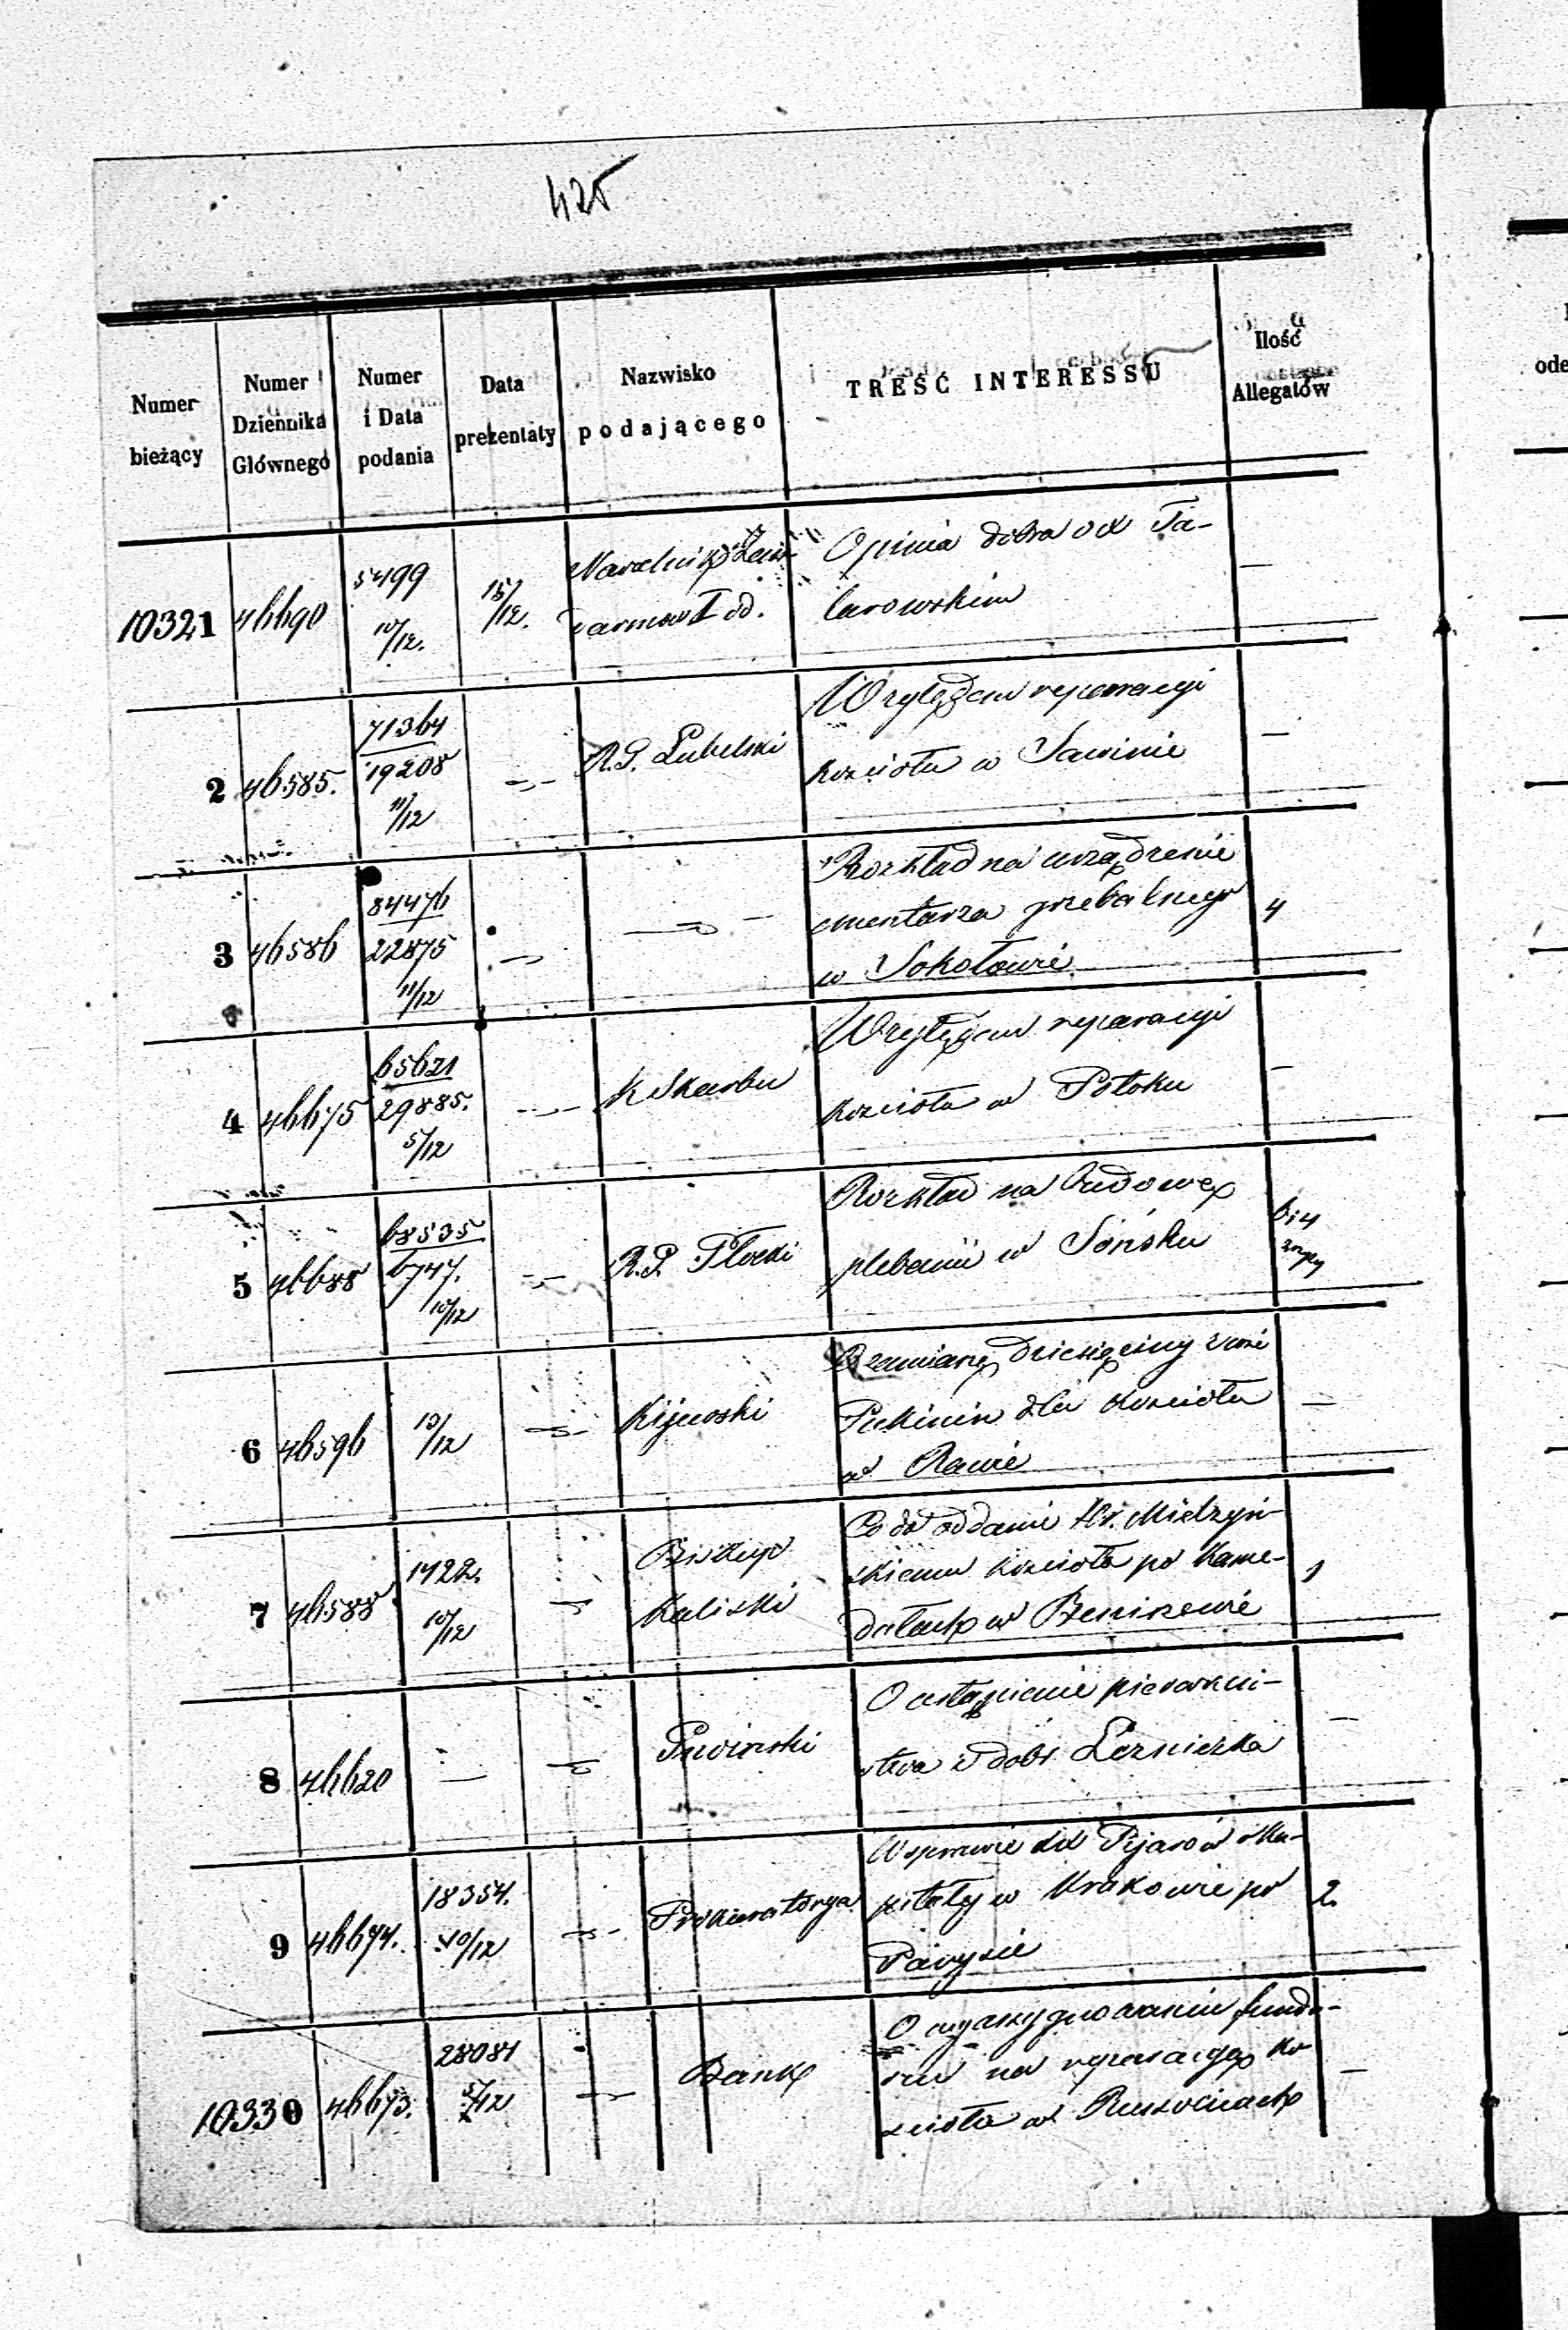 425
Numer bieżący
Numer Dziennika Głównego
Numer i Data podania
Data prezentaty
Nazwisko podającego
TREŚĆ INTERESSU
Ilość Allegatów
10321 46690 5499 10/12. 15/12. Naczelnik Żan-
darmow I od.
Opinia dobra od Ta-
larowskim
—
2 46585. 71364 19208 11/12 R.G. Lubelski
Względem reparacyi
kościoła w Sawinie
—
3 46586 84476 22875 11/12
Rozkład na urządzenie
cmentarza grzebalnego
w Sokołowie
4
4 46675 65621 29885. 5/12 K Skarbu
Względem reparacyi
kościoła w Potoku
—
5 46688 68535 6747. 10/12 R.G. Płocki
Rozkład na budowę
plebanii w Sońsku
6 i 4
6 46596 13/12 Kijewski
zamianę dziesięciny z wsi
dla kościoła
w Rawie
—
7 46588 1422. 10/12 Biskup
Kaliski
Co do oddania Hr. Mielżyń-
skiemu kościoła po Kame-
dułach w Bieniszewie
1
8 46620 —
O ustąpienie pierwszeń-
stwa z dóbr Leźniczka
—
9 46674. 18354. 10/12 Prokuratorya
W sprawie XX Pijarów o Ka-
pitały w Krakowie po
Parysie
2
10330 46673. 28081 5/12 Bank
O wyasygnowanie fundu-
szu na reparacyę ko
ścioła w Ruszocicach
—